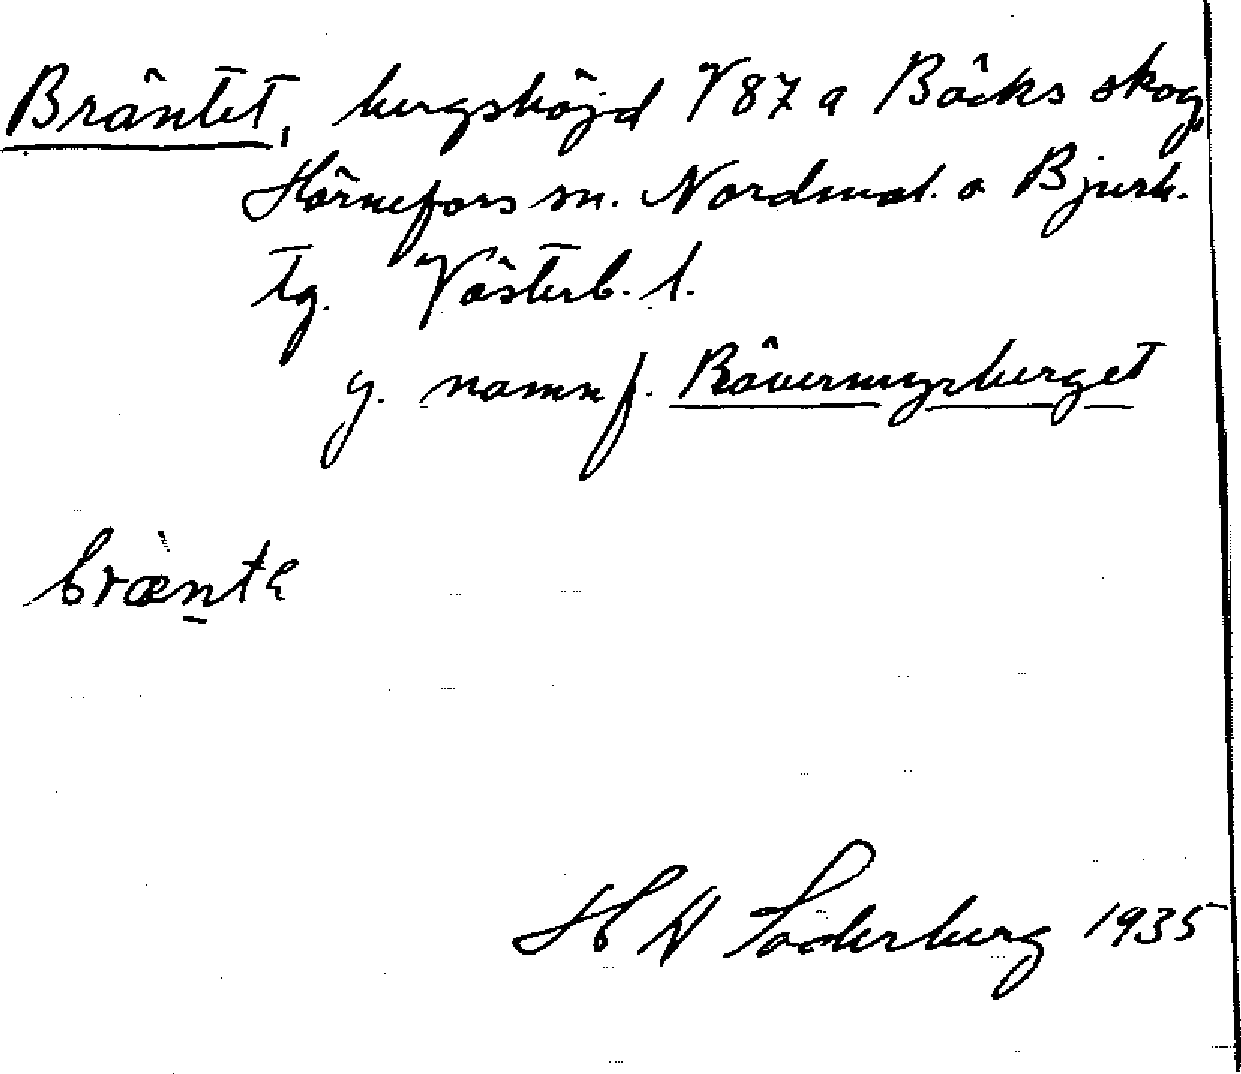 Bräntet, bergshöjd V 87 a Bäcks skog,
Hörnefors sn. Nordmal. o Bjurh.
tg. Västerb. l.
y. namn f. Bävermyrberget
bræ̀nte
H W Söderberg 1935